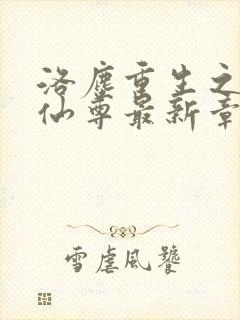 洛尘重生之
仙尊最新章
雪虐风饕